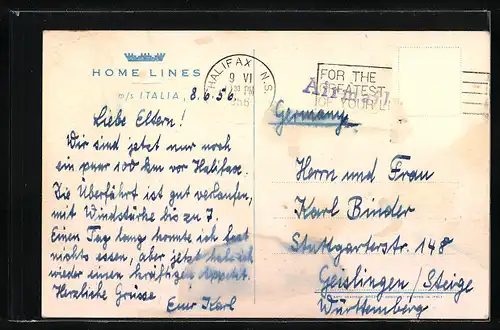 HOME LINES
m/s ITALIA, 8.6.56.
HALIFAX N.S.
9 VI
PM
FOR THE
GREATEST
OF YOUR L
Airmail
Liebe Eltern!
Wir sind jetzt nur noch
ein paar 100 km vor Halifax.
Die Überfahrt ist gut verlaufen,
mit Windstärke bis zu 7.
Einen Tag lang konnte ich fast
nichts essen, aber jetzt hab ich
wieder einen kräftigen Appetit.
Herzliche Grüsse
Euer Karl
Germany
Herrn und Frau
Karl Binder
Stuttgarterstr. 148
Geislingen/Steige
Württemberg